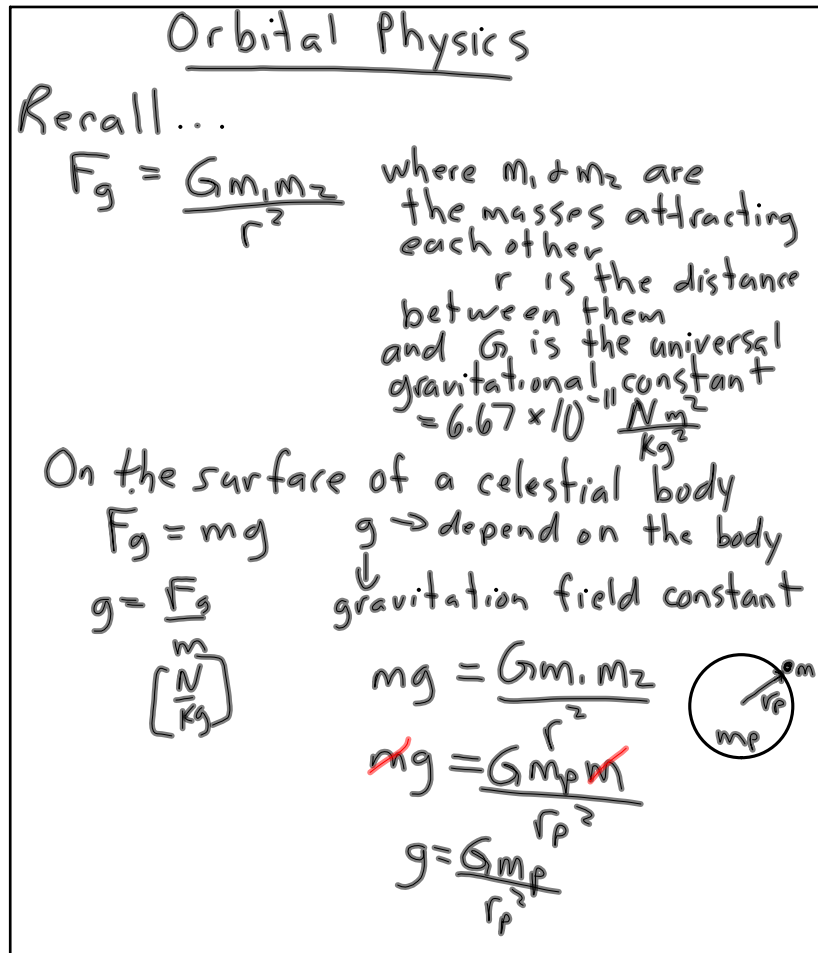 Orbital Physics
Recall...
F_g = G m₁ m₂ / r²
where m₁ & m₂ are
the masses attracting
each other
r is the distance
between them
and G is the universal
gravitational constant
= 6.67 × 10⁻¹¹ N m² / kg²
On the surface of a celestial body
F_g = mg
g → depend on the body
↓
gravitation field constant
g = F_g / m
[N / kg]
mg = G m₁ m₂ / r²
m
r_p
m_p
mg = G m_p m / r_p²
g = G m_p / r_p²